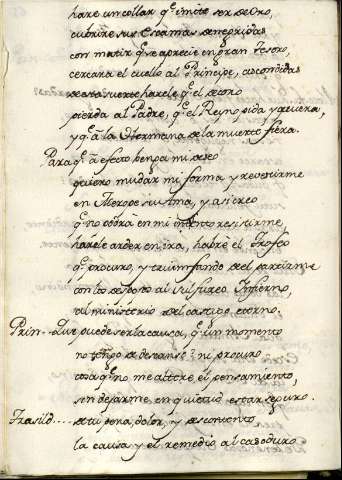 haré un collar q̃ imite ser de oro,
cubriré sus escamas denegridas
con matiz q̃ se aprecie en gran tesoro,
cercará el cuello al Principe, ascondidas
desta suerte haréle q̃ el decoro
pierda al Padre, q̃ el Reyno pida y quiera,
y q̃ a la Hermana de la muerte fiera.
Para q̃ a efecto benga mi deseo
quiero mudar mi forma y revestirme
en Merope su Ama, y asi creo
q̃ no podra en mi intento resistirme
haréle arder en ira, habré el trofeo
q̃ procuro, y triumfando de el partirme
con los despojos al sulfureo Infierno,
al ministerio del castigo eterno.
Prin- Que puede ser la causa, q̃ un momento
no tengo de descanso? ni procuro
cosa q̃ no me altere el pensamiento,
sin dejarme en quietud estar seguro.
Trasild.... de tu pena, dolor, y descontento
la causa y el remedio al caso duro